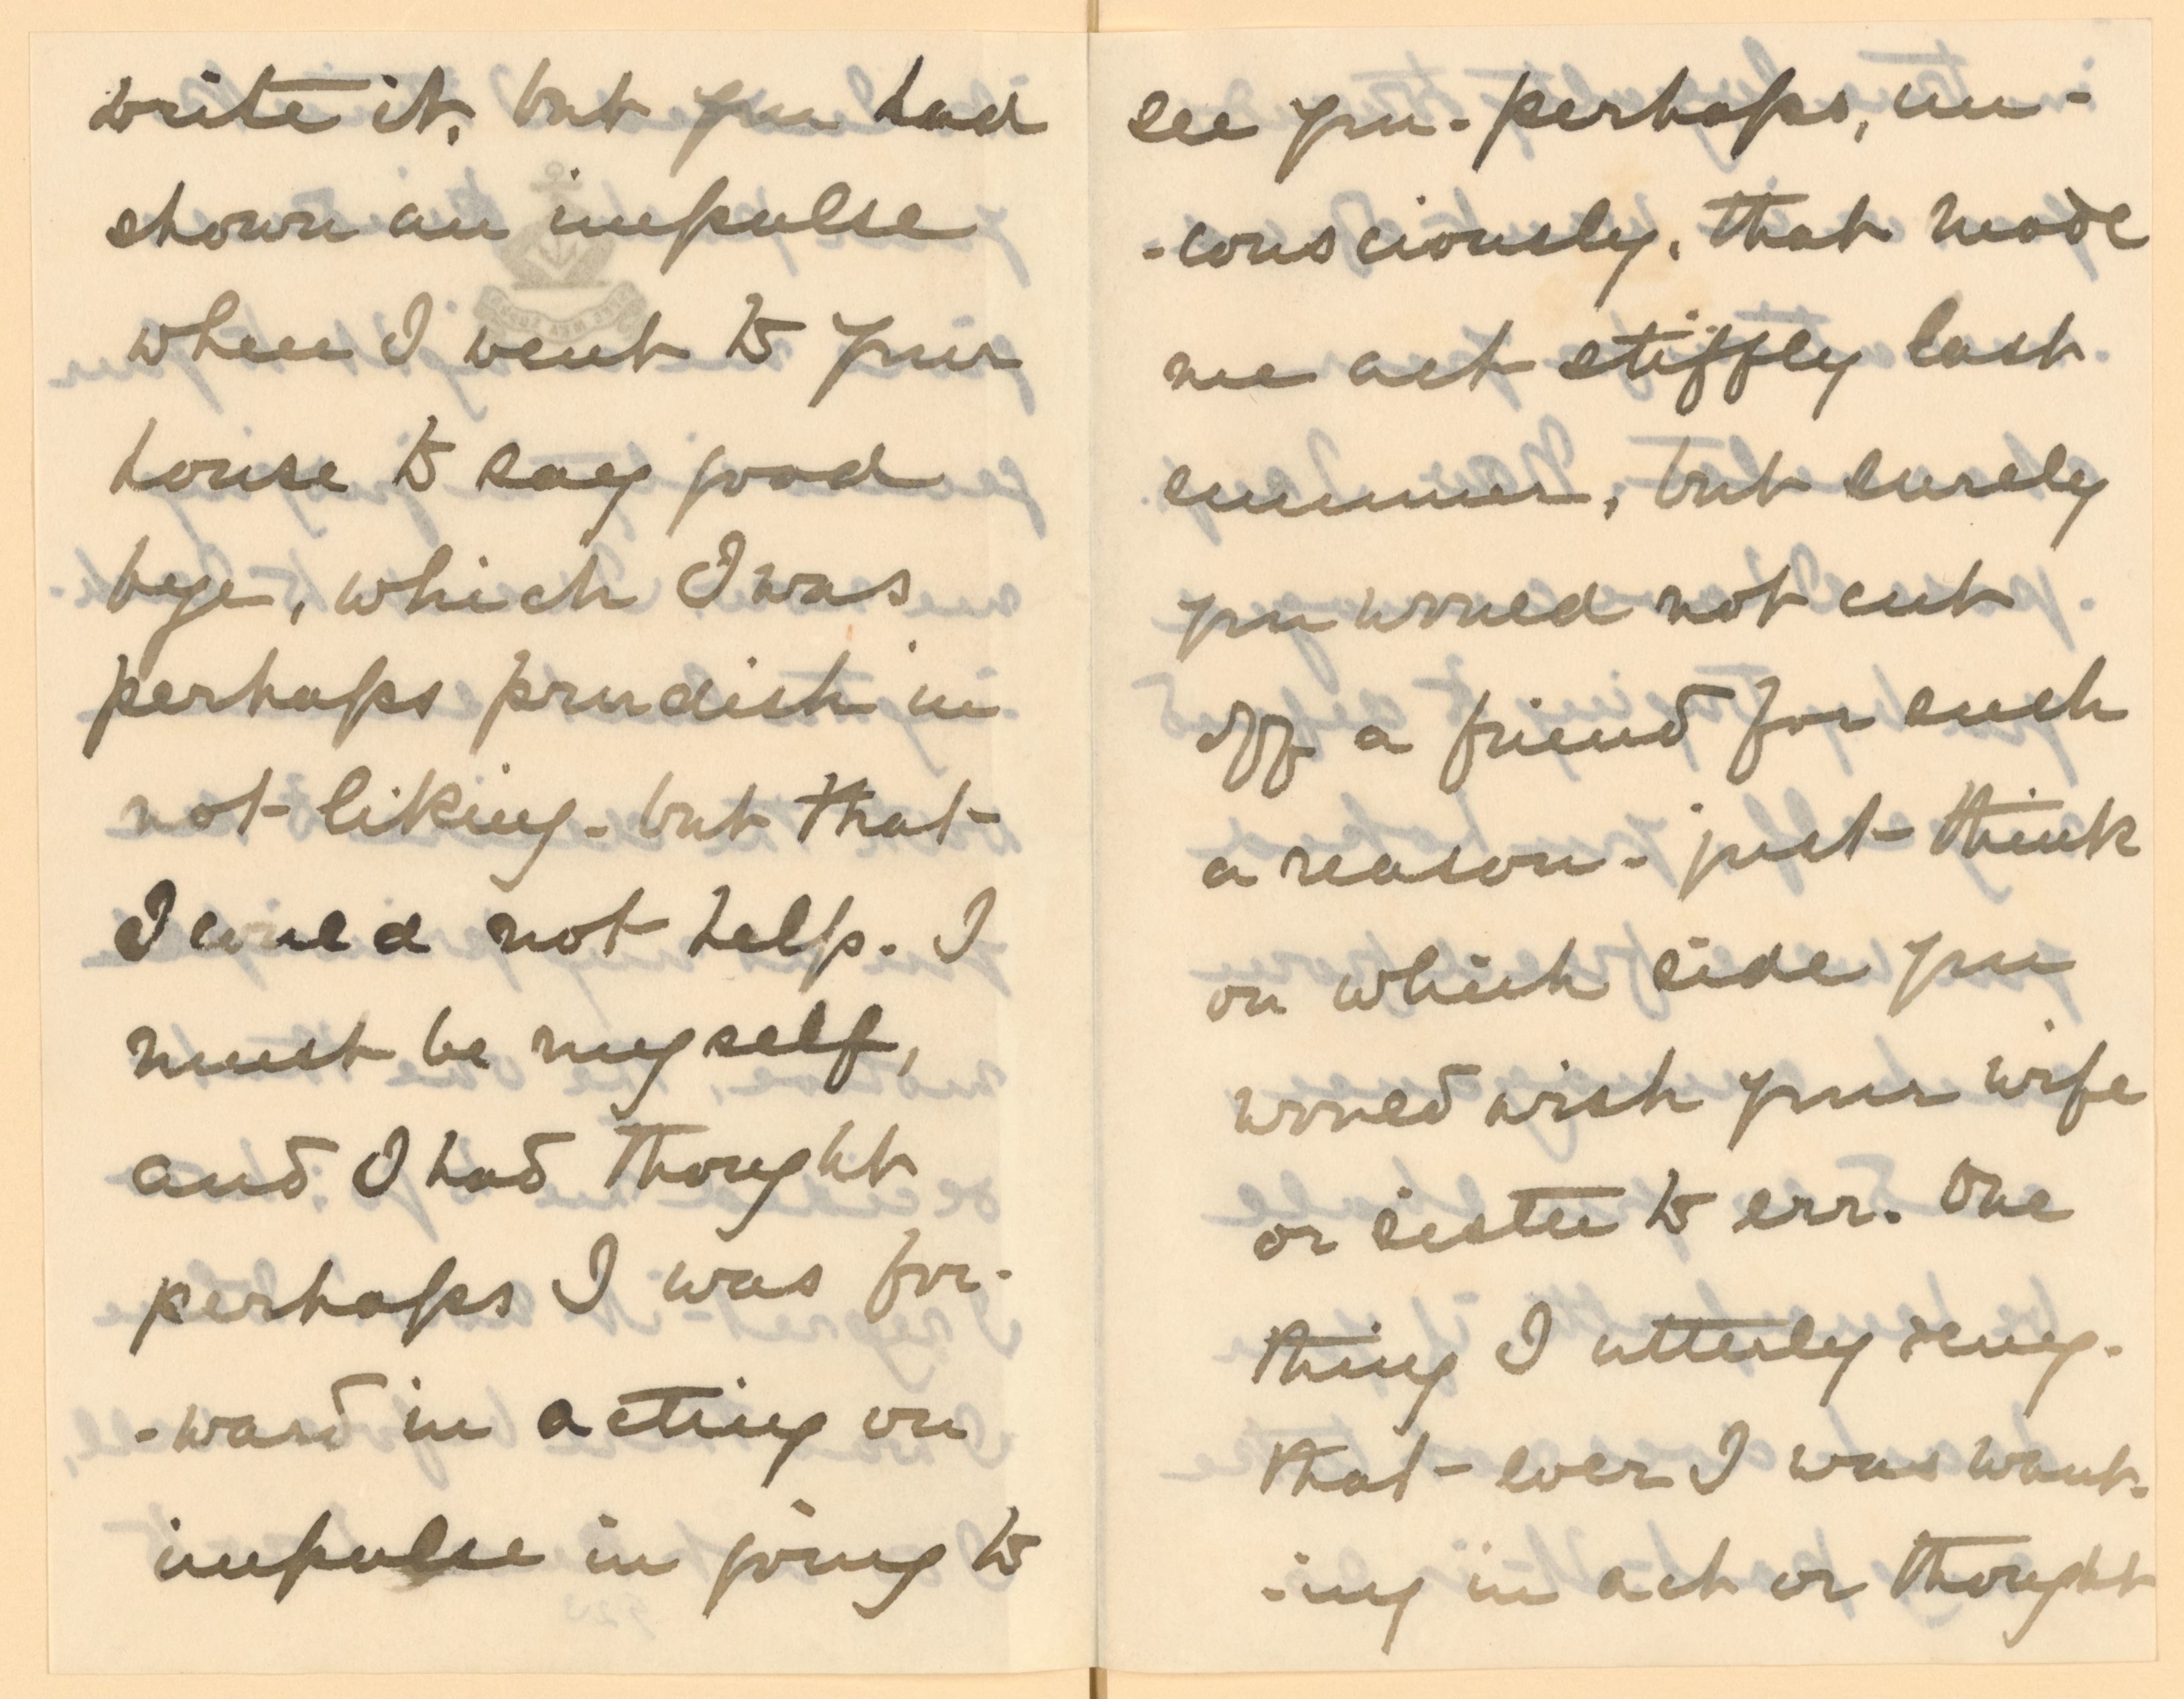 write it, but you had
shown an impulse
when I went to your
house to say good
bye, which I was
perhaps prudish in
not liking - but that
I could not help. I
must be myself,
and I had thought
perhaps I was for-
-ward in acting on
impulse in going to
see you - perhaps, un-
-consciously, that made
me act stiffly last
summer, but surely
you would not cut
off a friend for such
a reason - just think
on which side you
would wish your wife
or sister to err. One
thing I utterly deny -
that - ever I was want-
-ing in act or thought